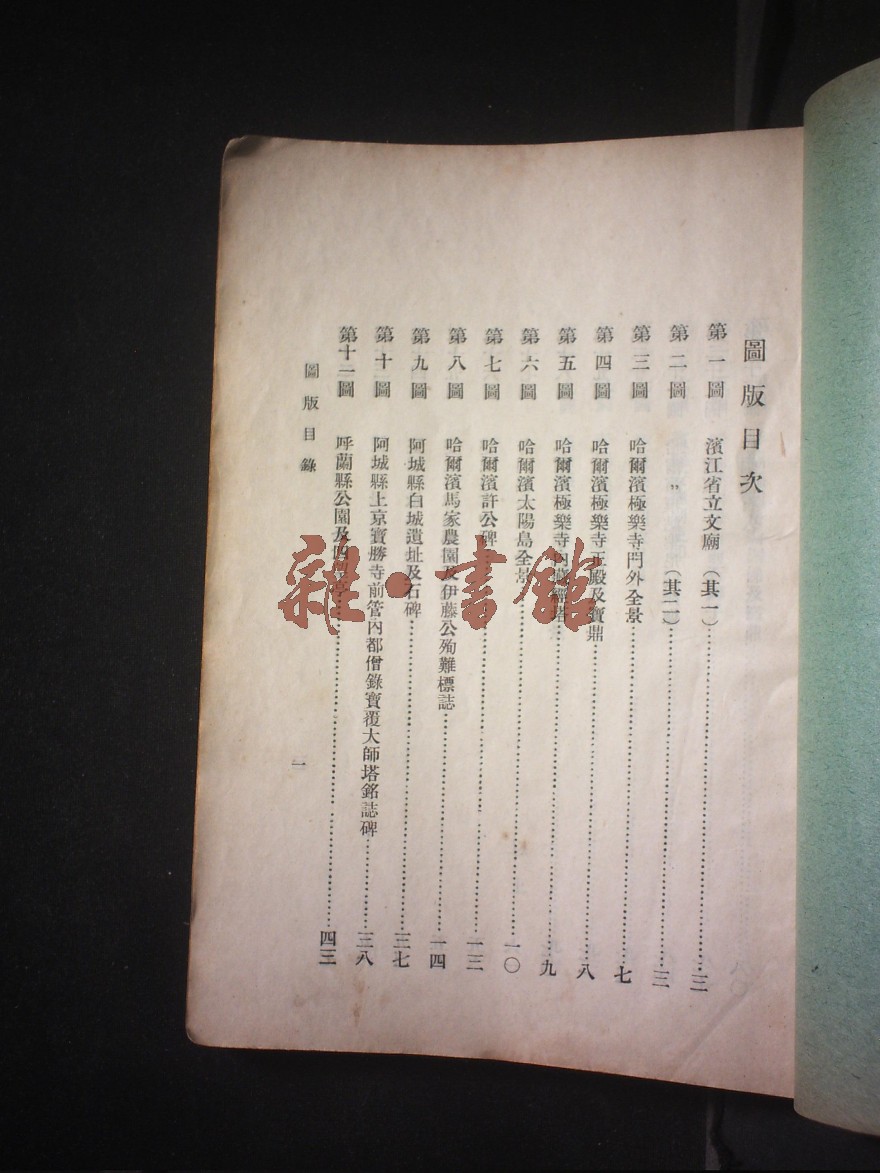 圖版目次
第一圖 濱江省立文廟(其一)…………三
第二圖 〃 (其二)…………三
第三圖 哈爾濱極樂寺門外全景…………七
第四圖 哈爾濱極樂寺王殿及寶鼎…………八
第五圖 哈爾濱極樂寺內藏經塔…………九
第六圖 哈爾濱太陽島全景…………一〇
第七圖 哈爾濱許公碑…………一三
第八圖 哈爾濱馬家農園及伊藤公殉難標誌…………一四
第九圖 阿城縣白城遺址及石碑…………三七
第十圖 阿城縣上京寶勝寺前管內都僧錄寶覆大師塔銘誌碑…………三八
第十一圖 呼蘭縣公園及四望亭…………四三
圖版目錄
一
雜·書館